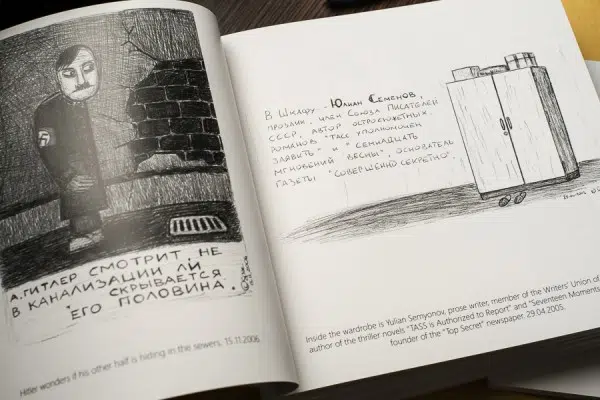 А. ГИТЛЕР СМОТРИТ НЕ
В КАНАЛИЗАЦИИ ЛИ
СКРЫВАЕТСЯ
ЕГО ПОЛОВИНА.
Hitler wonders if his other half is hiding in the sewers. 15.11.2006
В ШКАФУ ЮЛИАН СЕМЕНОВ,
ПРОЗАИК, ЧЛЕН СОЮЗА ПИСАТЕЛЕЙ
СССР, АВТОР ОСТРОСЮЖЕТНЫХ
РОМАНОВ "ТАСС УПОЛНОМОЧЕН
ЗАЯВИТЬ" И "СЕМНАДЦАТЬ
МГНОВЕНИЙ ВЕСНЫ", ОСНОВАТЕЛЬ
ГАЗЕТЫ "СОВЕРШЕННО СЕКРЕТНО".
Inside the wardrobe is Yulian Semyonov, prose writer, member of the Writers' Union of
author of the thriller novels "TASS is Authorized to Report" and "Seventeen Moments
founder of the "Top Secret" newspaper. 29.04.2005.